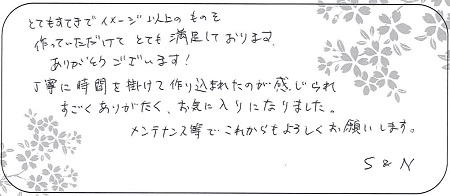 とてもすてきでイメージ以上のものを
作っていただけて とても満足しております。
ありがとうございます！
丁寧に時間を掛けて作り込まれたのが感じられ
すごくありがたく、お気に入りになりました。
メンテナンス等でこれからもよろしくお願いします。
S & N